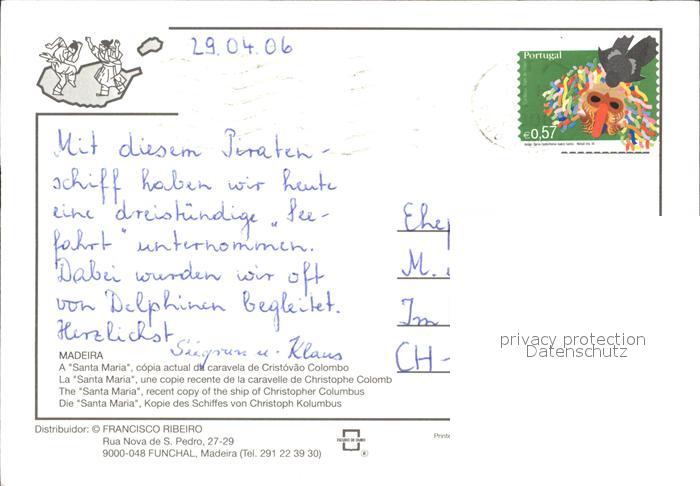 29.04.06
Portugal
€0,57
Mit diesem Piraten-
schiff haben wir heute
eine dreistündige „See-
fahrt" unternommen.
Dabei wurden wir oft
von Delphinen begleitet.
Herzlichst
Siegrun u. Klaus
Ehe
M.
Im
CH-
privacy protection
Datenschutz
MADEIRA
A "Santa Maria", cópia actual da caravela de Cristóvão Colombo
La "Santa Maria", une copie recente de la caravelle de Christophe Colomb
The "Santa Maria", recent copy of the ship of Christopher Columbus
Die "Santa Maria", Kopie des Schiffes von Christoph Kolumbus
Distribuidor: © FRANCISCO RIBEIRO
Rua Nova de S. Pedro, 27-29
9000-048 FUNCHAL, Madeira (Tel. 291 22 39 30)
Printe